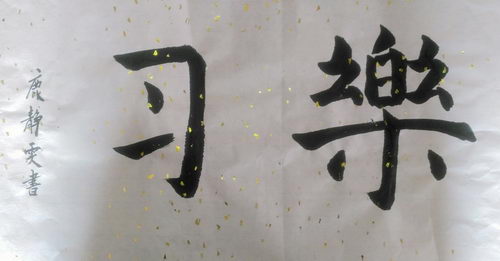 樂习
鹿静雯書